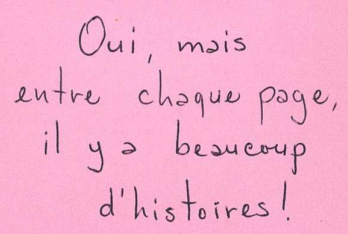 Oui, mais
entre chaque page,
il y a beaucoup
d'histoires!